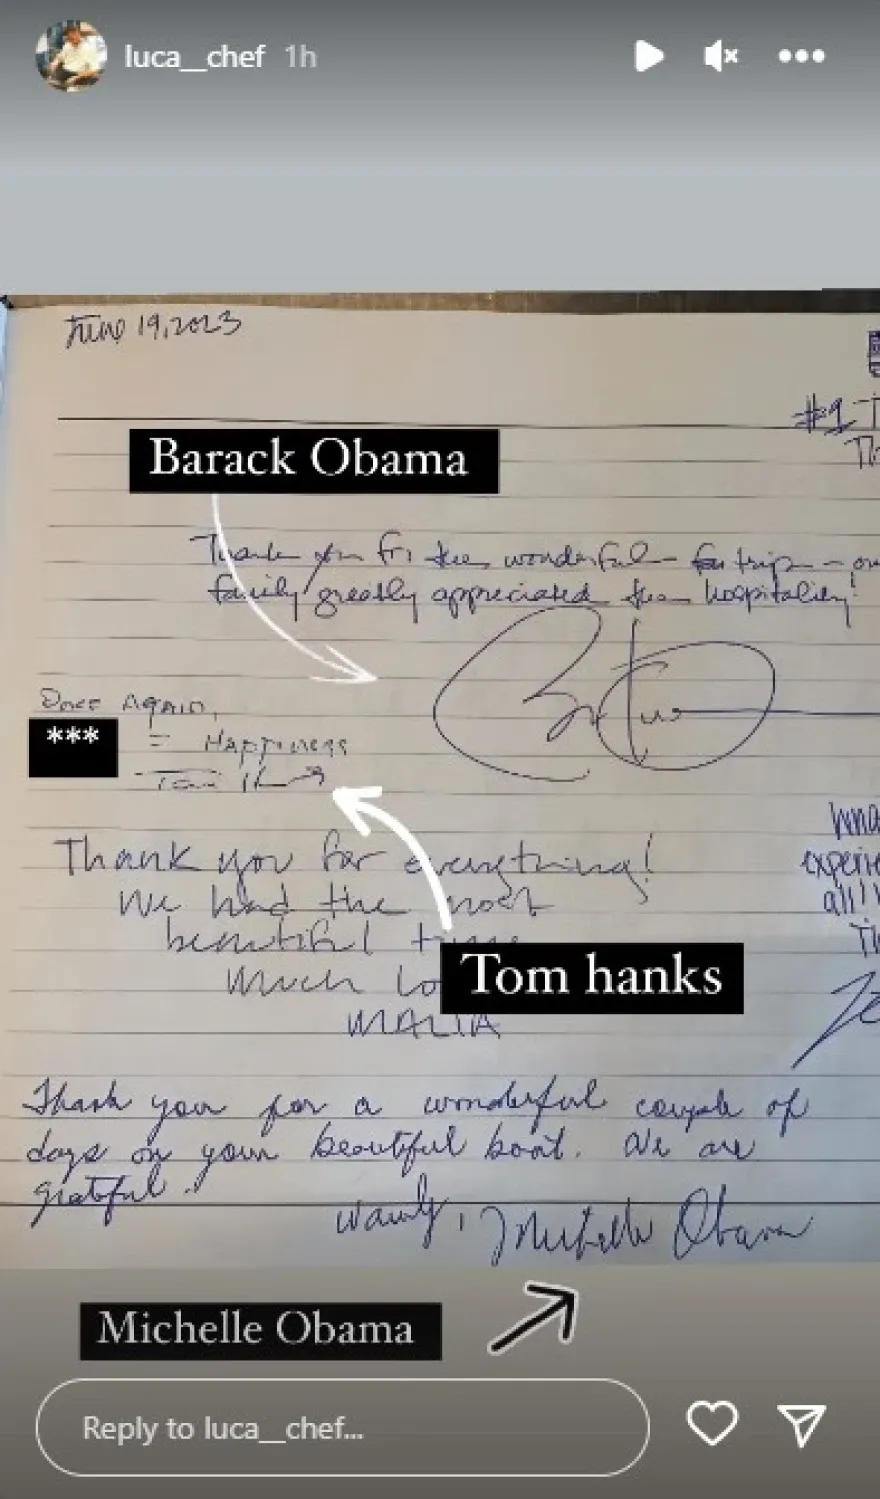 luca__chef 1h
June 19, 2023
#1
Barack Obama
Thank you for the wonderful — fun trip — our
family greatly appreciated the hospitality!
Once Again,
*** = Happiness
Thank you for everything!
We had the most
beautiful time
Much lo
MALIA
experie
all!
Tom hanks
Thank you for a wonderful couple of
days on your beautiful boat. We are
grateful.
Warmly, Michelle Obama
Michelle Obama
Reply to luca__chef...